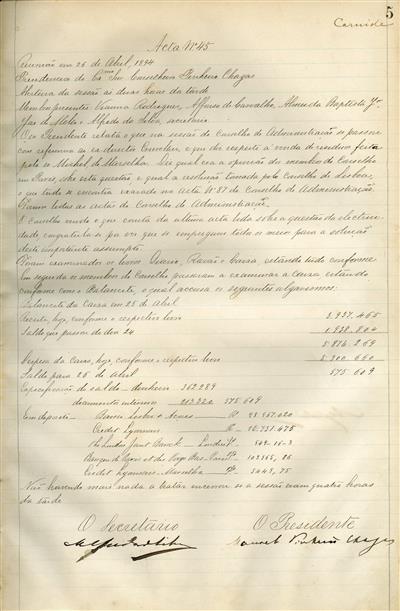 5
Carnide
Acta Nº 45
Reunião em 26 de Abril, 1894
Presidencia do Exmo Snr Conselheiro Pinheiro Chagas
Abertura da sessão ás duas horas da tarde
Membros presentes: Vianna Rodrigues, Affonso de Carvalho, Almeida Baptista Jor
Jas da Mota e Alfredo da Silva, secretario.
O Snr Presidente relata o que na sessão do Conselho de Administração se passou
com referencia ao ex director Cornelier, e que diz respeito á venda de residuos feita
pelo Sr Michel de Marselha. Lê qual era a opinião dos membros do Conselho
em Paris, sobre esta questão, e qual a resolução tomada pelo Conselho de Lisboa,
o que tudo se encontra exarado na Acta Nº 87 do Conselho de Administração.
Foram lidas as actas do Conselho de Administração.
O Conselho vendo o que consta da ultima acta lida sobre a questão da electrici-
dade, congratula-se por ver que se empregam todos os meios para a solução
deste importante assumpto.
Foram examinados os livros Diario, Razão e Caixa, estando tudo conforme
Em seguida os membros do Conselho passaram a examinar a Caixa estando
conforme com o Balancete, o qual accusa os seguintes algarismos:
Balancete da Caixa em 25 de Abril
Receita, hoje, conforme o respectivo livro 3.937,465
Saldo que passou do dia 24 1.938,804
5.876,269
Despeza da Caixa, hoje, conforme o respectivo livro 5.300,660
Saldo para 26 de Abril 575,609
Especificação do saldo - dinheiro 362,289
documentos internos 213,320 575,609
Em deposito - Banco Lisboa & Açores
Credit Lyonnais
The London Joint Stock - Londres £ 509-15-3
Credit Lyonnais - Marselha
Não havendo mais nada a tratar encerrou-se a sessão eram quatro horas
da tarde
O Secretario O Presidente
Alfredo da Silva Manuel Pinheiro Chagas